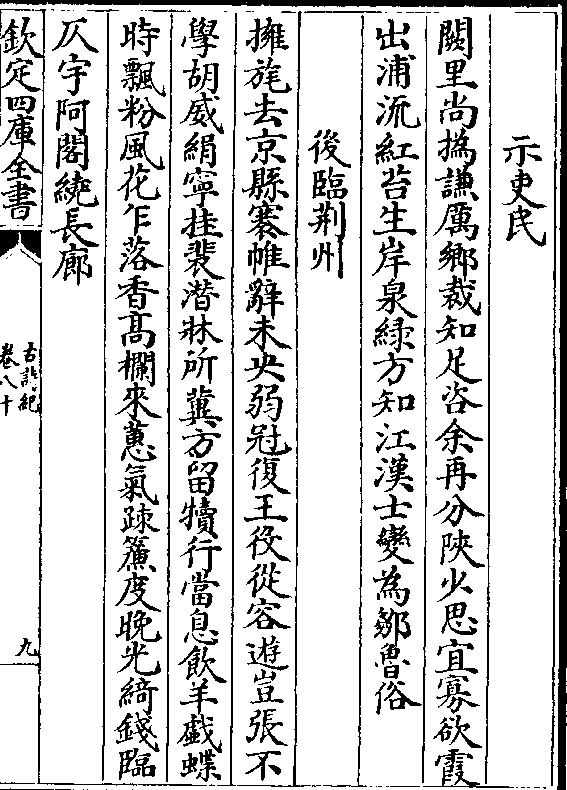 示吏民
闕里尚撝謙厲鄉裁知足咨余再分陜少思宜寡欲霞
出浦流紅苔生岸泉綠方知江漢士變為鄒魯俗
後臨荆州
擁旄去京縣褰帷辭未央弱冠復王役從容遊豈張不
學胡威絹寧挂裴潛牀所冀方留犢行當息飲羊戲蝶
時飄粉風花乍落香高欄來蕙氣疎簾度晚光綺錢臨
仄宇阿閣繞長廊
欽定四庫全書
古詩紀
卷八十
九